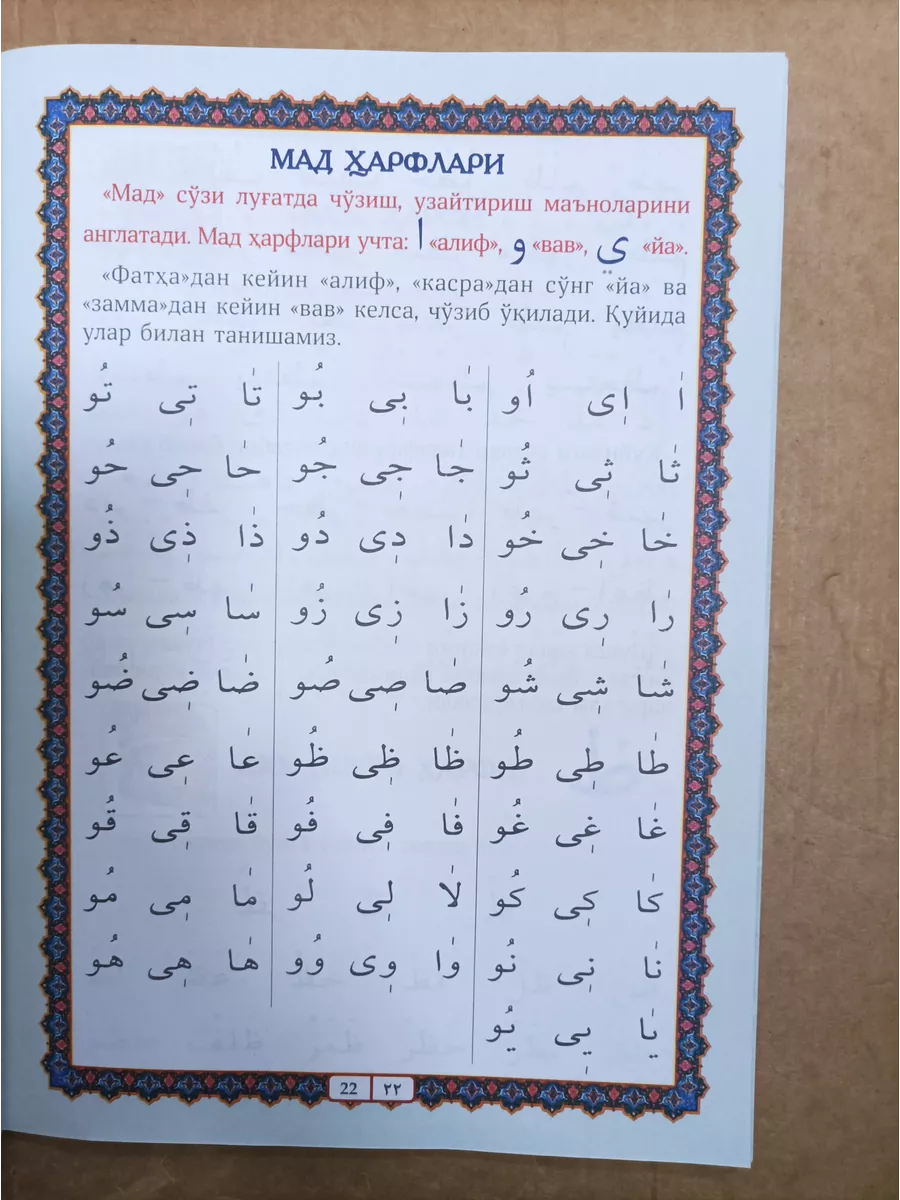 МАД ҲАРФЛАРИ
«Мад» сўзи луғатда чўзиш, узайтириш маъноларини
англатади. Мад ҳарфлари учта: ا «алиф», و «вав», ي «йа».
«Фатҳа»дан кейин «алиф», «касра»дан сўнг «йа» ва
«замма»дан кейин «вав» келса, чўзиб ўқилади. Қуйида
улар билан танишамиз.
اٰ اٖى اُو بَٰا بٖى بُو تَٰا تٖى تُو
ثَٰا ثٖى ثُو جَٰا جٖى جُو حَٰا حٖى حُو
خَٰا خٖى خُو دَٰا دٖى دُو ذَٰا ذٖى ذُو
رَٰا رٖى رُو زَٰا زٖى زُو سَٰا سٖى سُو
شَٰا شٖى شُو صَٰا صٖى صُو ضَٰا ضٖى ضُو
طَٰا طٖى طُو ظَٰا ظٖى ظُو عَٰا عٖى عُو
غَٰا غٖى غُو فَٰا فٖى فُو قَٰا قٖى قُو
كَٰا كٖى كُو لَٰا لٖى لُو مَٰا مٖى مُو
نَٰا نٖى نُو وَٰا وٖى وُو هَٰا هٖى هُو
يَٰا يٖى يُو
22 ٢٢